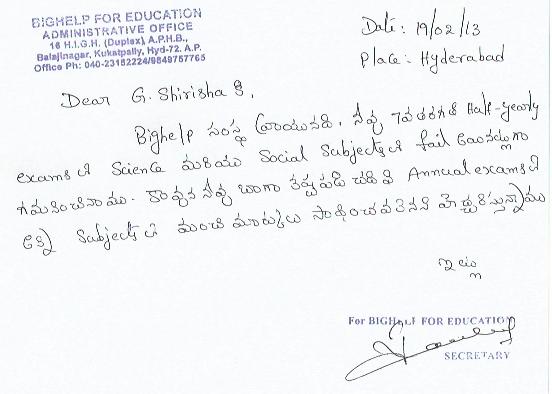 BIGHELP FOR EDUCATION
ADMINISTRATIVE OFFICE
16 H.I.G.H. (Duplex) A.P.H.B.,
Balajinagar, Kukatpally, Hyd-72. A.P.
Office Ph: 040-23152224/9849757765
Date: 19/02/13
Place: Hyderabad
Dear G. Shirisha కి,
Bighelp సంస్థ వ్రాయునది. నీవు 7వ తరగతి Half-yearly
exams లో Science మరియు Social Subjects లో fail అయినట్లుగా
గమనించినాము. కావున నీవు బాగా కష్టపడి చదివి Annual exams లో
Subjects లో మంచి మార్కులు సాధించవలెనని హెచ్చరిస్తున్నాము
ఇట్లు
For BIGHELP FOR EDUCATION
SECRETARY